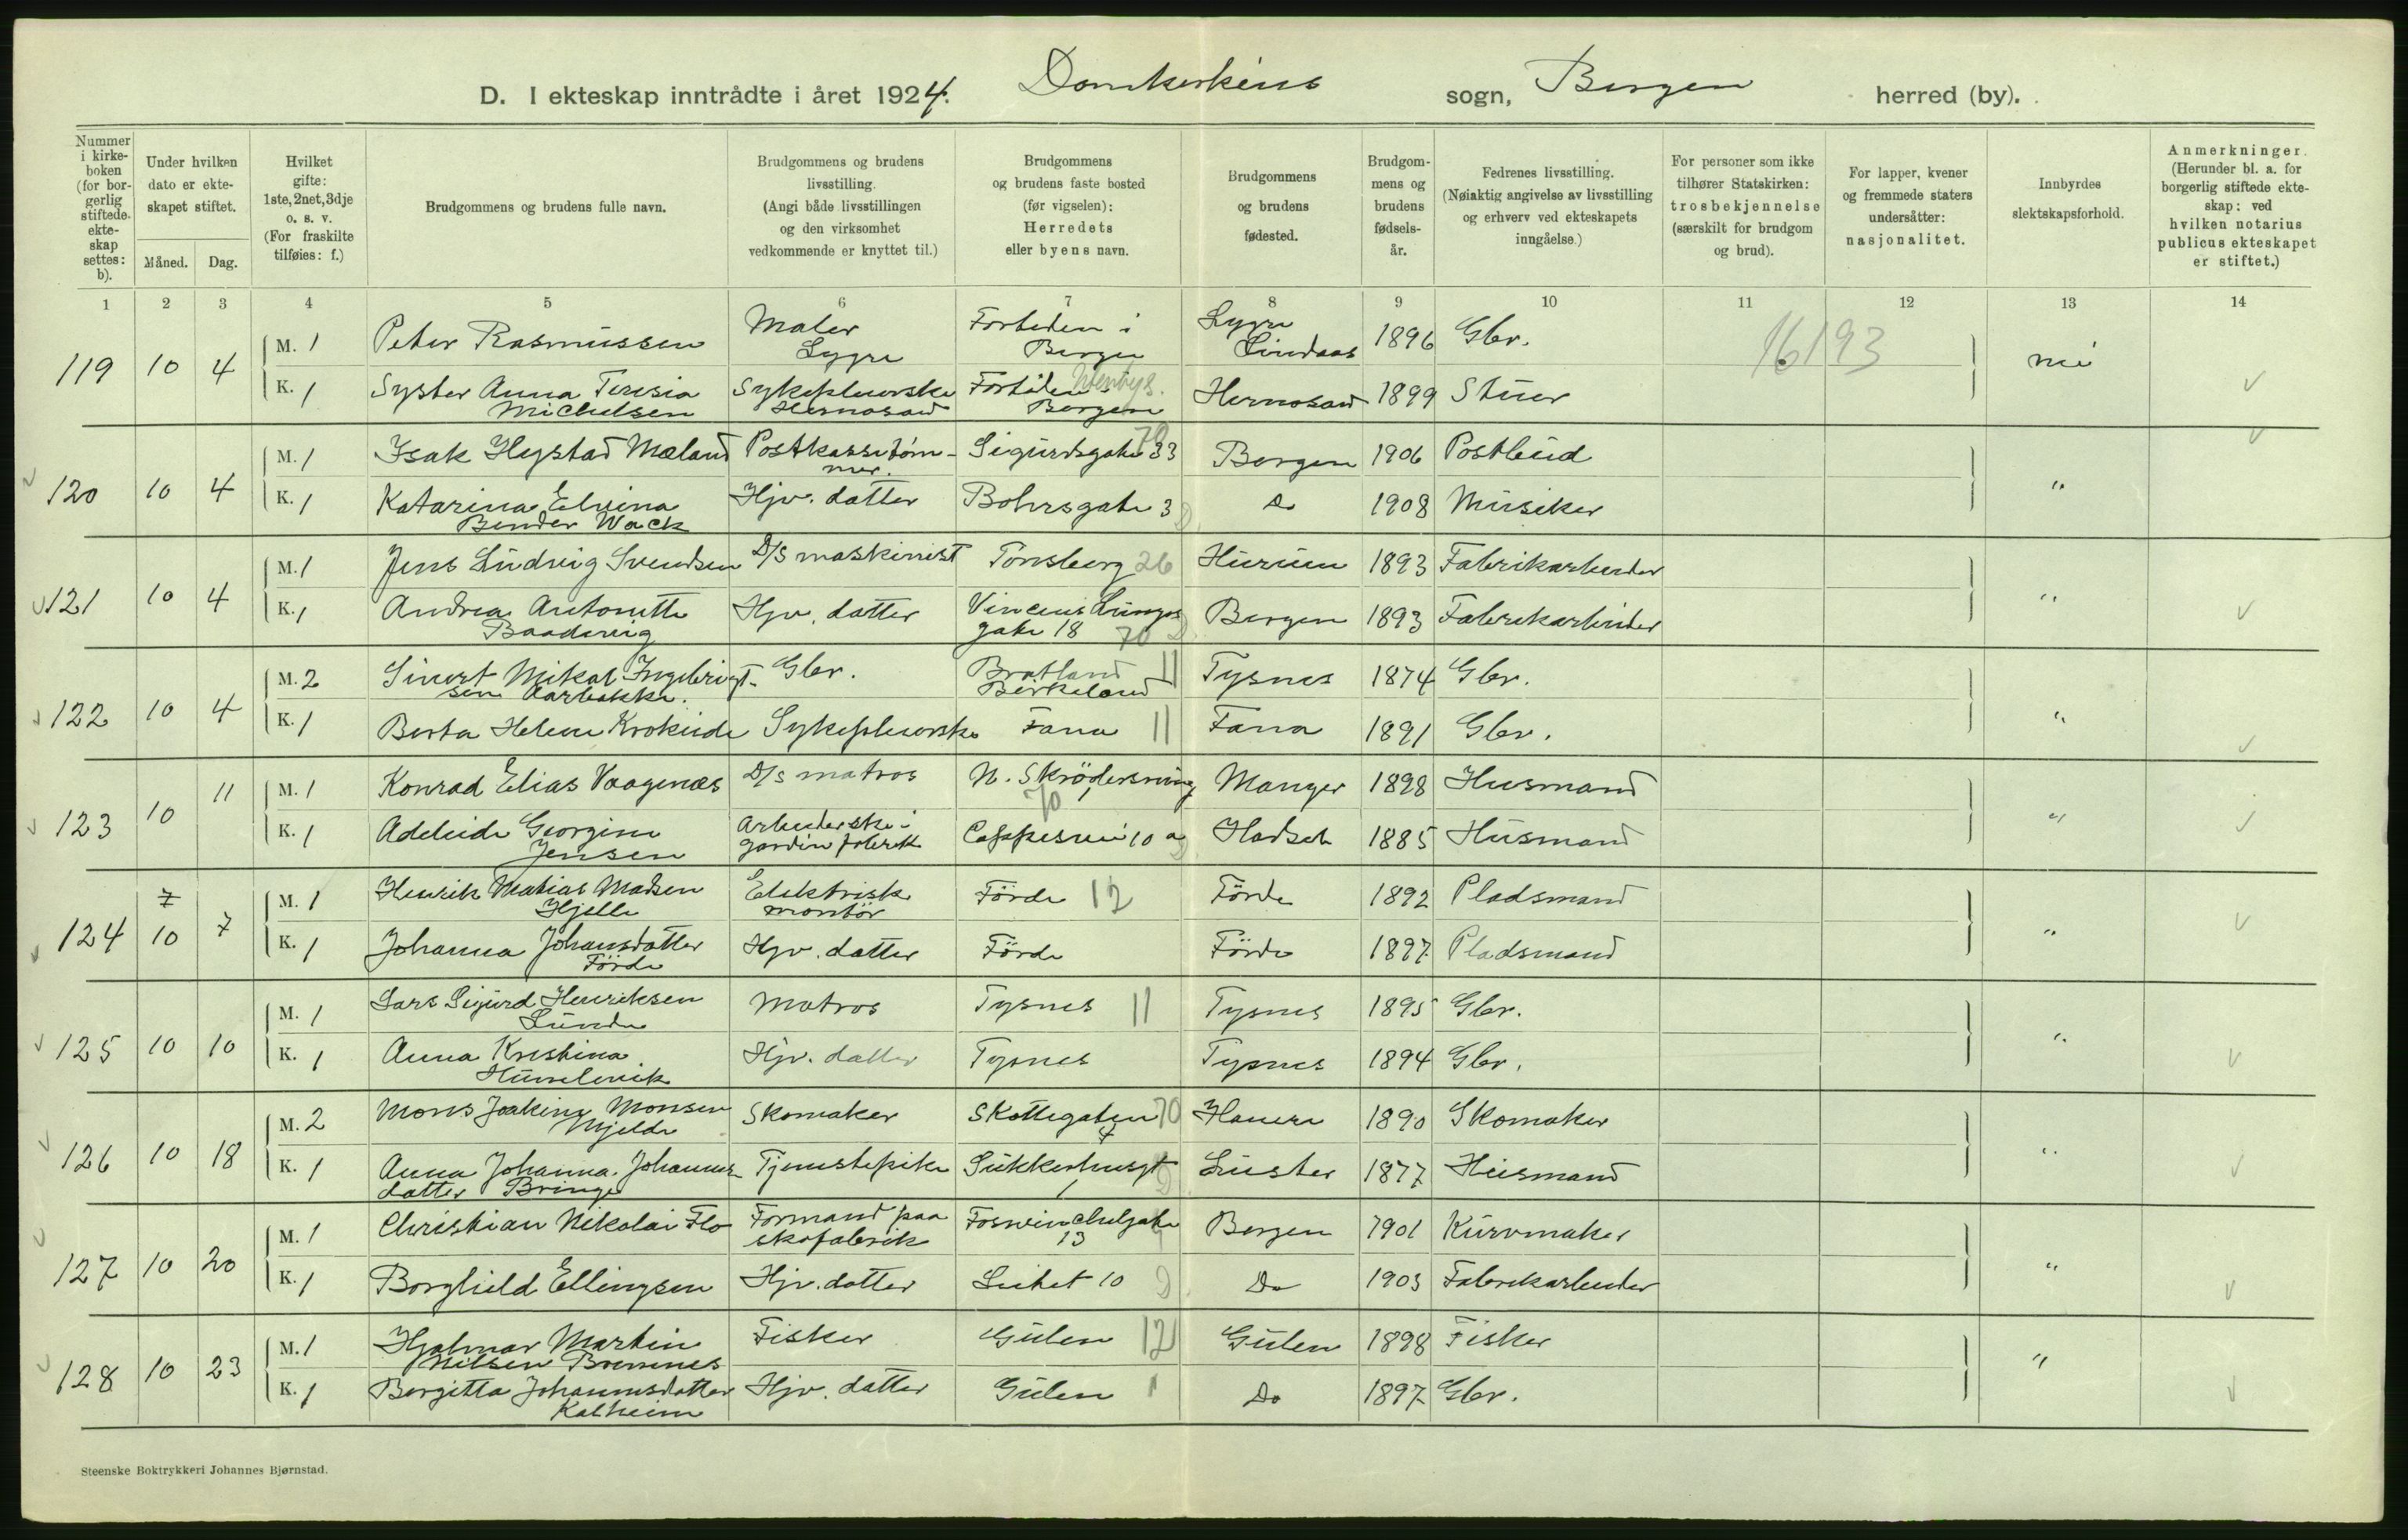 D. I ekteskap inntrådte i året 1924. Domkirkens sogn, Bergen herred (by).
Nummer i kirkeboken (for borgerlig stiftede ekteskap settes: b).
Under hvilken dato er ekteskapet stiftet.
Måned. Dag.
Hvilket gifte: 1ste, 2net, 3dje o. s. v. (For fraskilte tilføies: f.)
Brudgommens og brudens fulle navn.
Brudgommens og brudens livsstilling. (Angi både livsstillingen og den virksomhet vedkommende er knyttet til.)
Brudgommens og brudens faste bosted (før vigselen): Herredets eller byens navn.
Brudgommens og brudens fødested.
Brudgommens og brudens fødselsår.
Fedrenes livsstilling. (Nøiaktig angivelse av livsstilling og erhverv ved ekteskapets inngåelse.)
For personer som ikke tilhører Statskirken: trosbekjennelse (særskilt for brudgom og brud).
For lapper, kvener og fremmede staters undersåtter: nasjonalitet.
Innbyrdes slektskapsforhold.
Anmerkninger. (Herunder bl. a. for borgerlig stiftede ekteskap: ved hvilken notarius publicus ekteskapet er stiftet.)
1 2 3 4 5 6 7 8 9 10 11 12 13 14
119 10 4 M. 1 Peter Rasmussen Maler Lygre Fortiden i Bergen Lygre Lindaas 1896 Gbr. 16193 nei
K. 1 Syster Anna Teresia Michelsen Sykepleierske Hernosand Fortiden i Bergen Hernosand 1899 Stuer
120 10 4 M. 1 Isak Hystad Mæland Postkassetømmer. Sigurdsgate 33 70 Bergen 1906 Postbud "
K. 1 Katarina Elvina Bender Wack Hjv. datter Bohrsgate 3 Do 1908 Musiker
121 10 4 M. 1 Jens Ludvig Svendsen D/S maskinist Tönsberg 26 Hurum 1893 Fabrikarbeider "
K. 1 Andrea Antonette Baadsvig Hjv. datter Vincens Lunges gate 18 70 Bergen 1893 Fabrikarbeider
122 10 4 M. 2 Sivert Mikal Ingebrigtsen Aarbakke. Gbr. Bratland Birkeland 11 Tysnes 1874 Gbr. "
K. 1 Berta Helene Krokeide Sykepleierske Fana 11 Fana 1891 Gbr.
123 10 11 M. 1 Konrad Elias Vaagenæs D/s matros N. Skrödersning 1 70 Manger 1898 Husmand "
K. 1 Adeleide Georgine Jensen Arbeiderske i gardinfabrik Cappesvei 10 a Hadsel 1885 Husmand
124 7 10 7 M. 1 Henrik Matias Madsen Hjelle Elektrisk montör Förde 12 Förde 1892 Pladsmand "
K. 1 Johanna Johansdatter Förde Hjv. datter Förde Förde 1897 Pladsmand
125 10 10 M. 1 Lars Sigurd Henriksen Lunde Matros Tysnes 11 Tysnes 1895 Gbr. "
K. 1 Anna Kristina Humlevik Hjv. datter Tysnes Tysnes 1894 Gbr.
126 10 18 M. 2 Mons Joakim Monsen Mjelde Skomaker Skottegaten 4 70 Haugen 1890 Skomaker "
K. 1 Anna Johanna Johannesdatter Bringe Tjenestepike Sukkerhusgt 1 Luster 1877 Husmand
127 10 20 M. 1 Christian Nikolai Flo Formand paa skofabrik Foswinckelgate 13 Bergen 1901 Kurvmaker "
K. 1 Borghild Ellingsen Hjv. datter Leitet 10 Do 1903 Fabrikarbeider
128 10 23 M. 1 Hjalmar Martin Nilsen Brennes Fisker Gulen 12 Gulen 1898 Fisker "
K. 1 Bergitta Johannesdatter Kalheim Hjv. datter Gulen Do 1897 Gbr.
Steenske Boktrykkeri Johannes Bjørnstad.